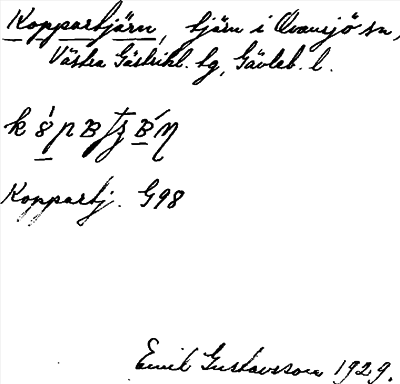 Koppartjärn, tjärn i Ovansjö sn,
Västra Gästrikl. hg, Gävleb. l.
Koppartj. G98
Emil Gustavsson 1929.